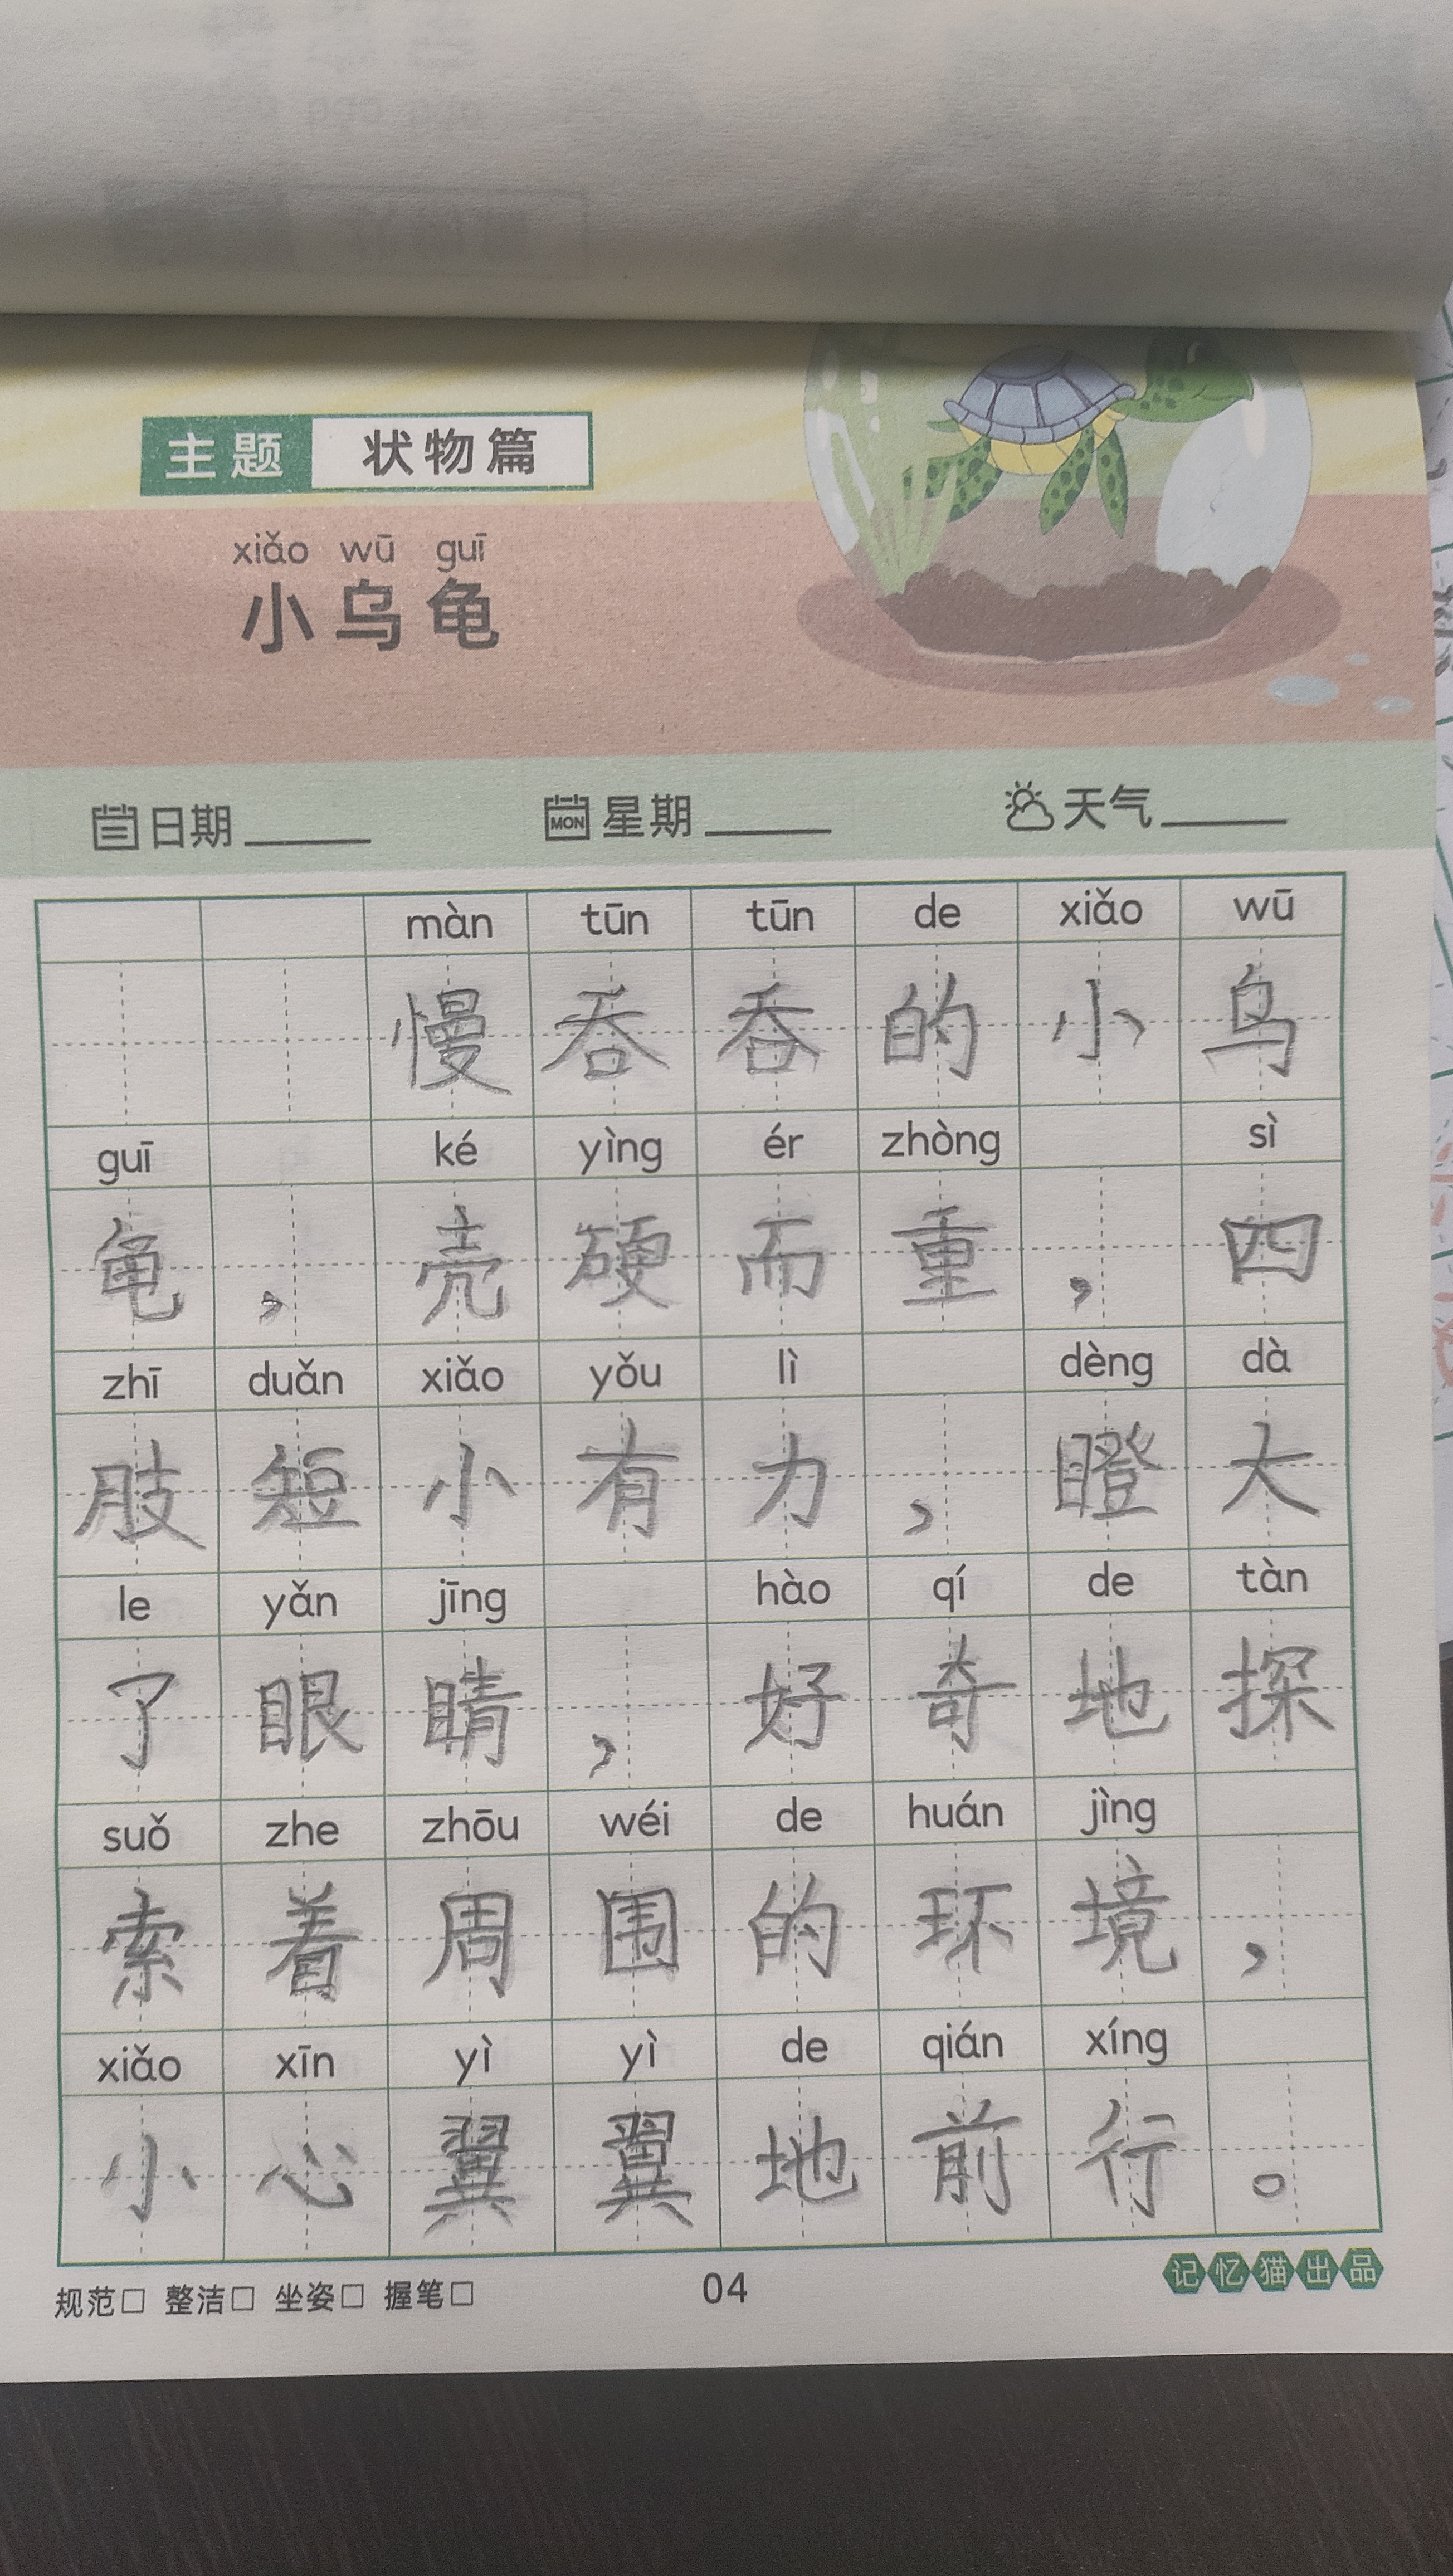 主题 状物篇
xiǎo wū guī
小乌龟
日期 MON 星期 天气
màn tūn tūn de xiǎo wū
慢吞吞的小乌
guī ké yìng ér zhòng sì
龟，壳硬而重，四
zhī duǎn xiǎo yǒu lì dèng dà
肢短小有力，瞪大
le yǎn jīng hào qí de tàn
了眼睛，好奇地探
suǒ zhe zhōu wéi de huán jìng
索着周围的环境，
xiǎo xīn yì yì de qián xíng
小心翼翼地前行。
规范□ 整洁□ 坐姿□ 握笔□ 04 记忆猫出品